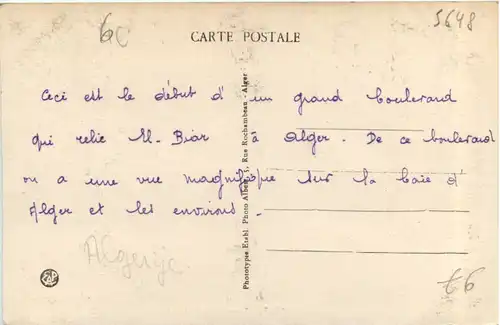 6C
5648
CARTE POSTALE
Ceci est le début d'un grand boulevard
qui relie El-Biar à Alger. De ce boulevard
on a une vue magnifique sur la baie d'
Alger et les environs.
Phototypie Etabl. Photo Albert, 5, Rue Rochambeau - Alger
Algerije